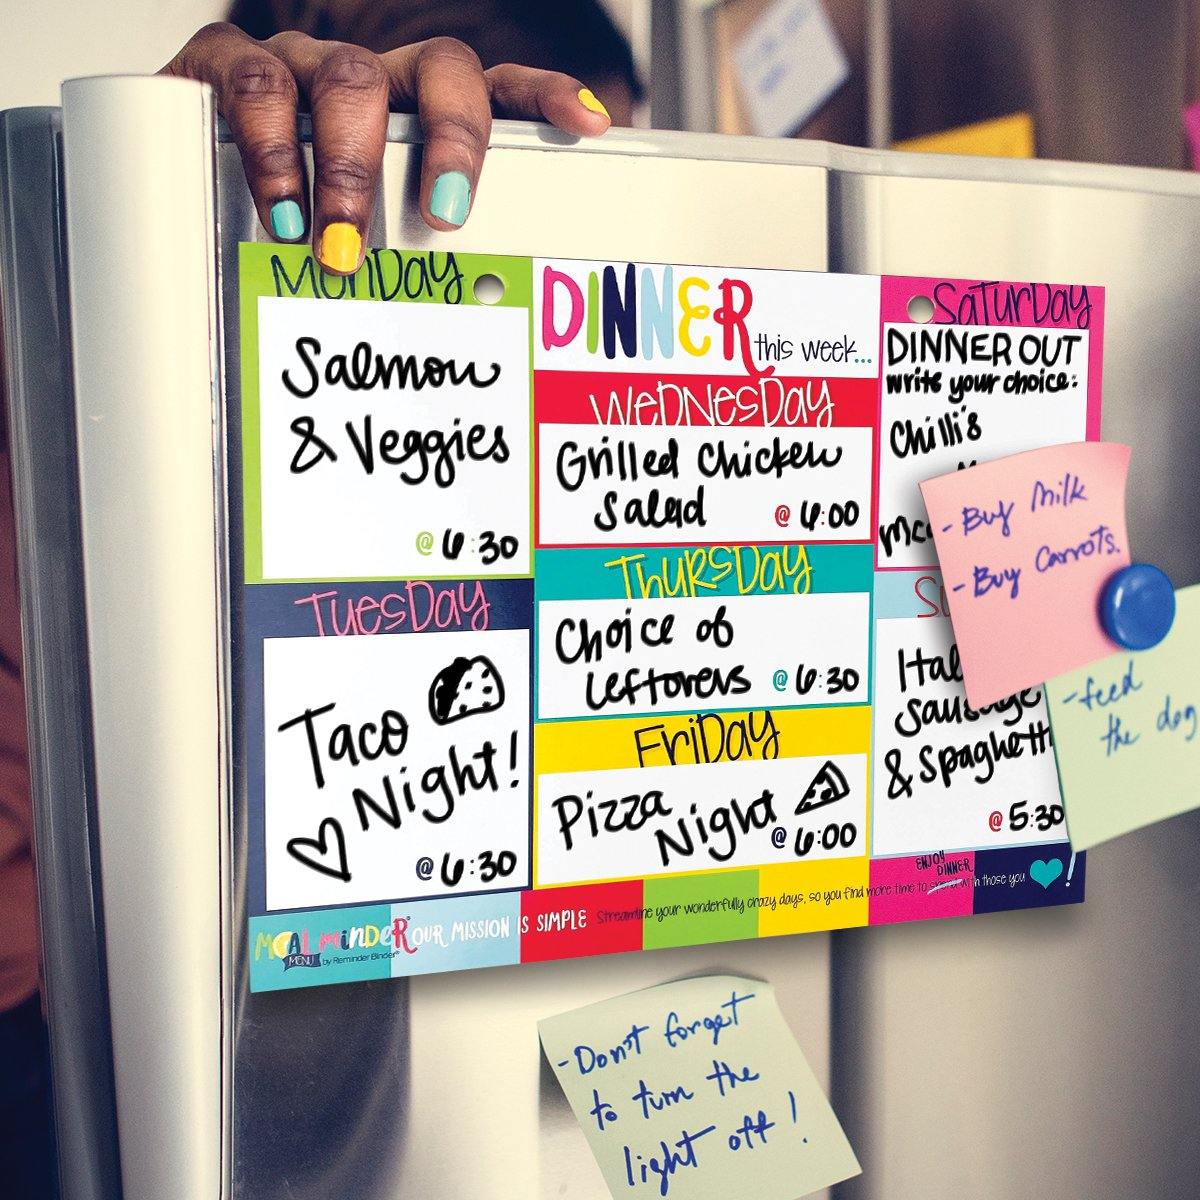 MonDay
Salmon
& Veggies
@ 6:30
TuesDay
Taco
Night!
@ 6:30
DINNER
this week...
WeDNesDay
Grilled Chicken
Salad
@ 6:00
ThursDay
Choice of
Leftovers @ 6:30
FriDay
Pizza
Night
@ 6:00
SaturDay
DINNER OUT
write your choice:
Chilli's
Sausage
& Spaghetti
@ 5:30
- Buy Milk
- Buy Carrots.
- feed
the dog
MEAL minDeR®
MENU by Reminder Binder®
OUR MISSION IS SIMPLE
Streamline your wonderfully crazy days, so you find more time to spend with those you !
ENJOY
DINNER
- Don't forget
to turn the
light off!